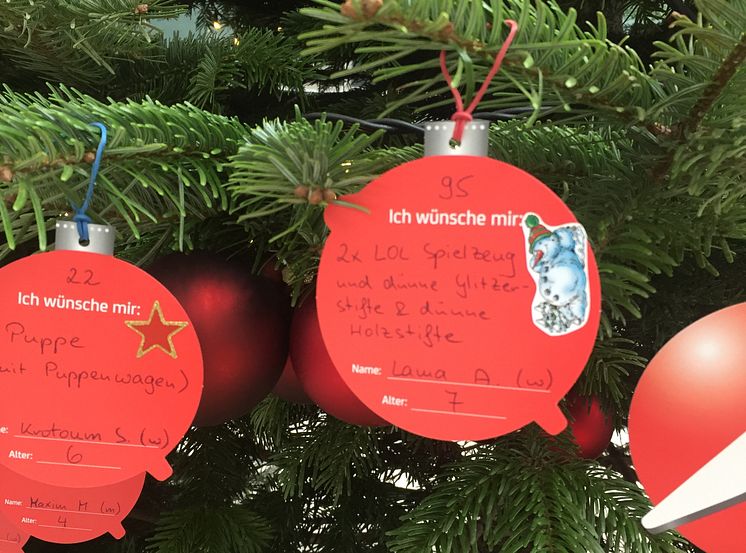 22
Ich wünsche mir:
Puppe
mit Puppenwagen)
Krotoum S. (w)
Alter: 6
Name: Maxim M (m)
Alter: 4
(w)
95
Ich wünsche mir:
2x LOL Spielzeug
und dünne Glitzer-
stifte & dünne
Holzstifte
Name: Lama A. (w)
Alter: 7